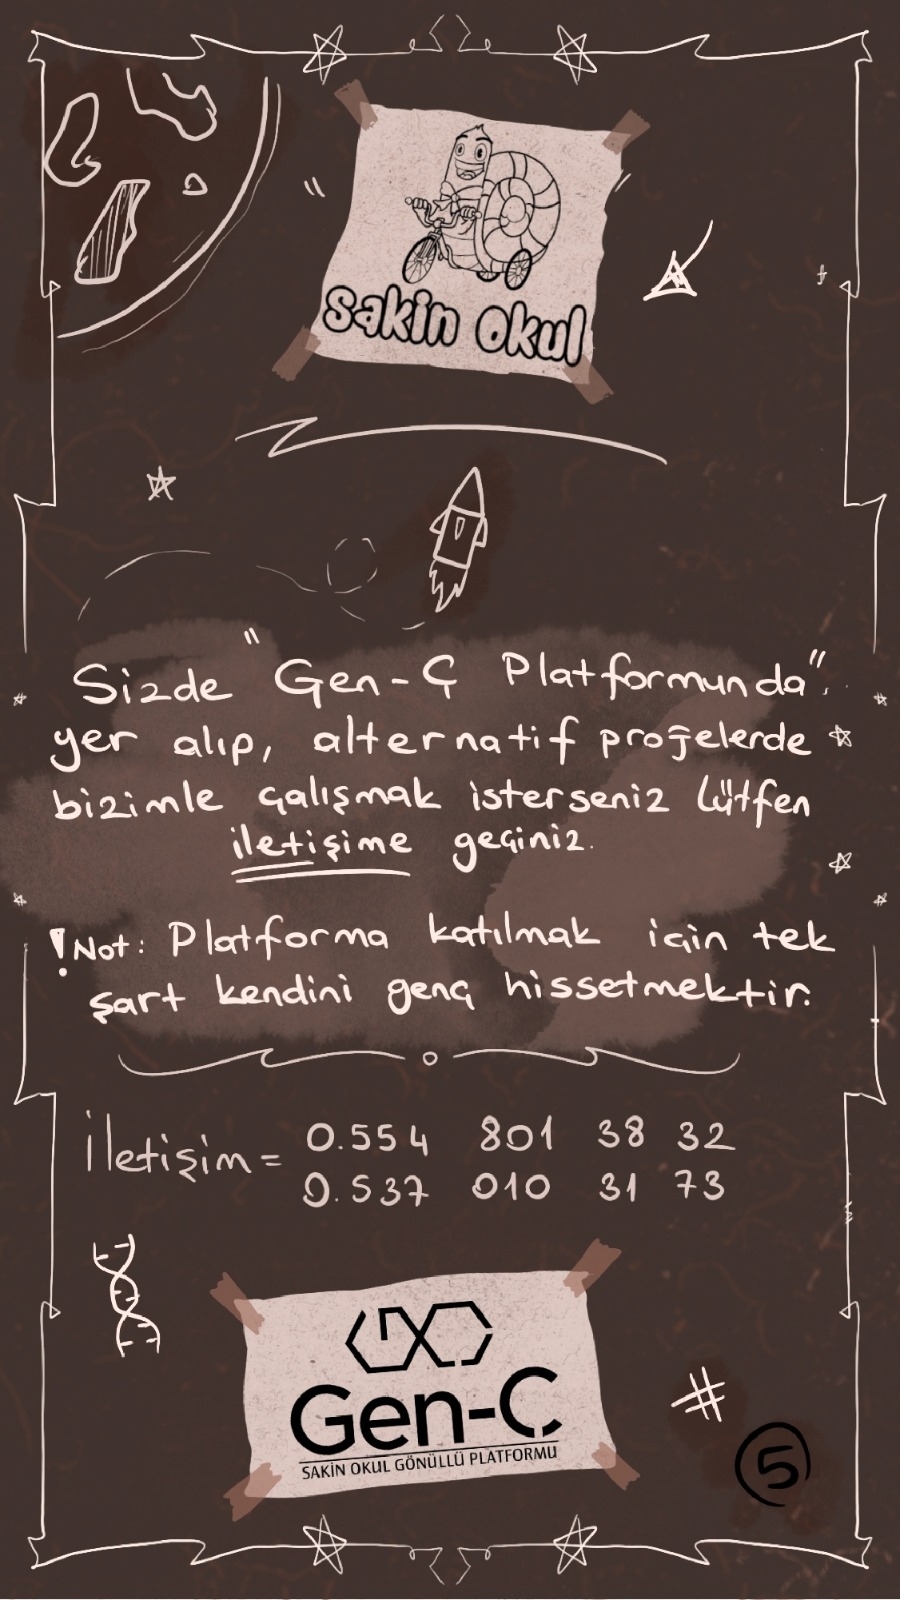 sakin okul
Sizde "Gen-Ç Platformunda"
yer alıp, alternatif projelerde
bizimle çalışmak isterseniz lütfen
iletişime geçiniz.
!Not: Platforma katılmak için tek
şart kendini genç hissetmektir.
İletişim = 0.554 801 38 32
0.537 010 31 73
Gen-Ç
SAKİN OKUL GÖNÜLLÜ PLATFORMU
#
5